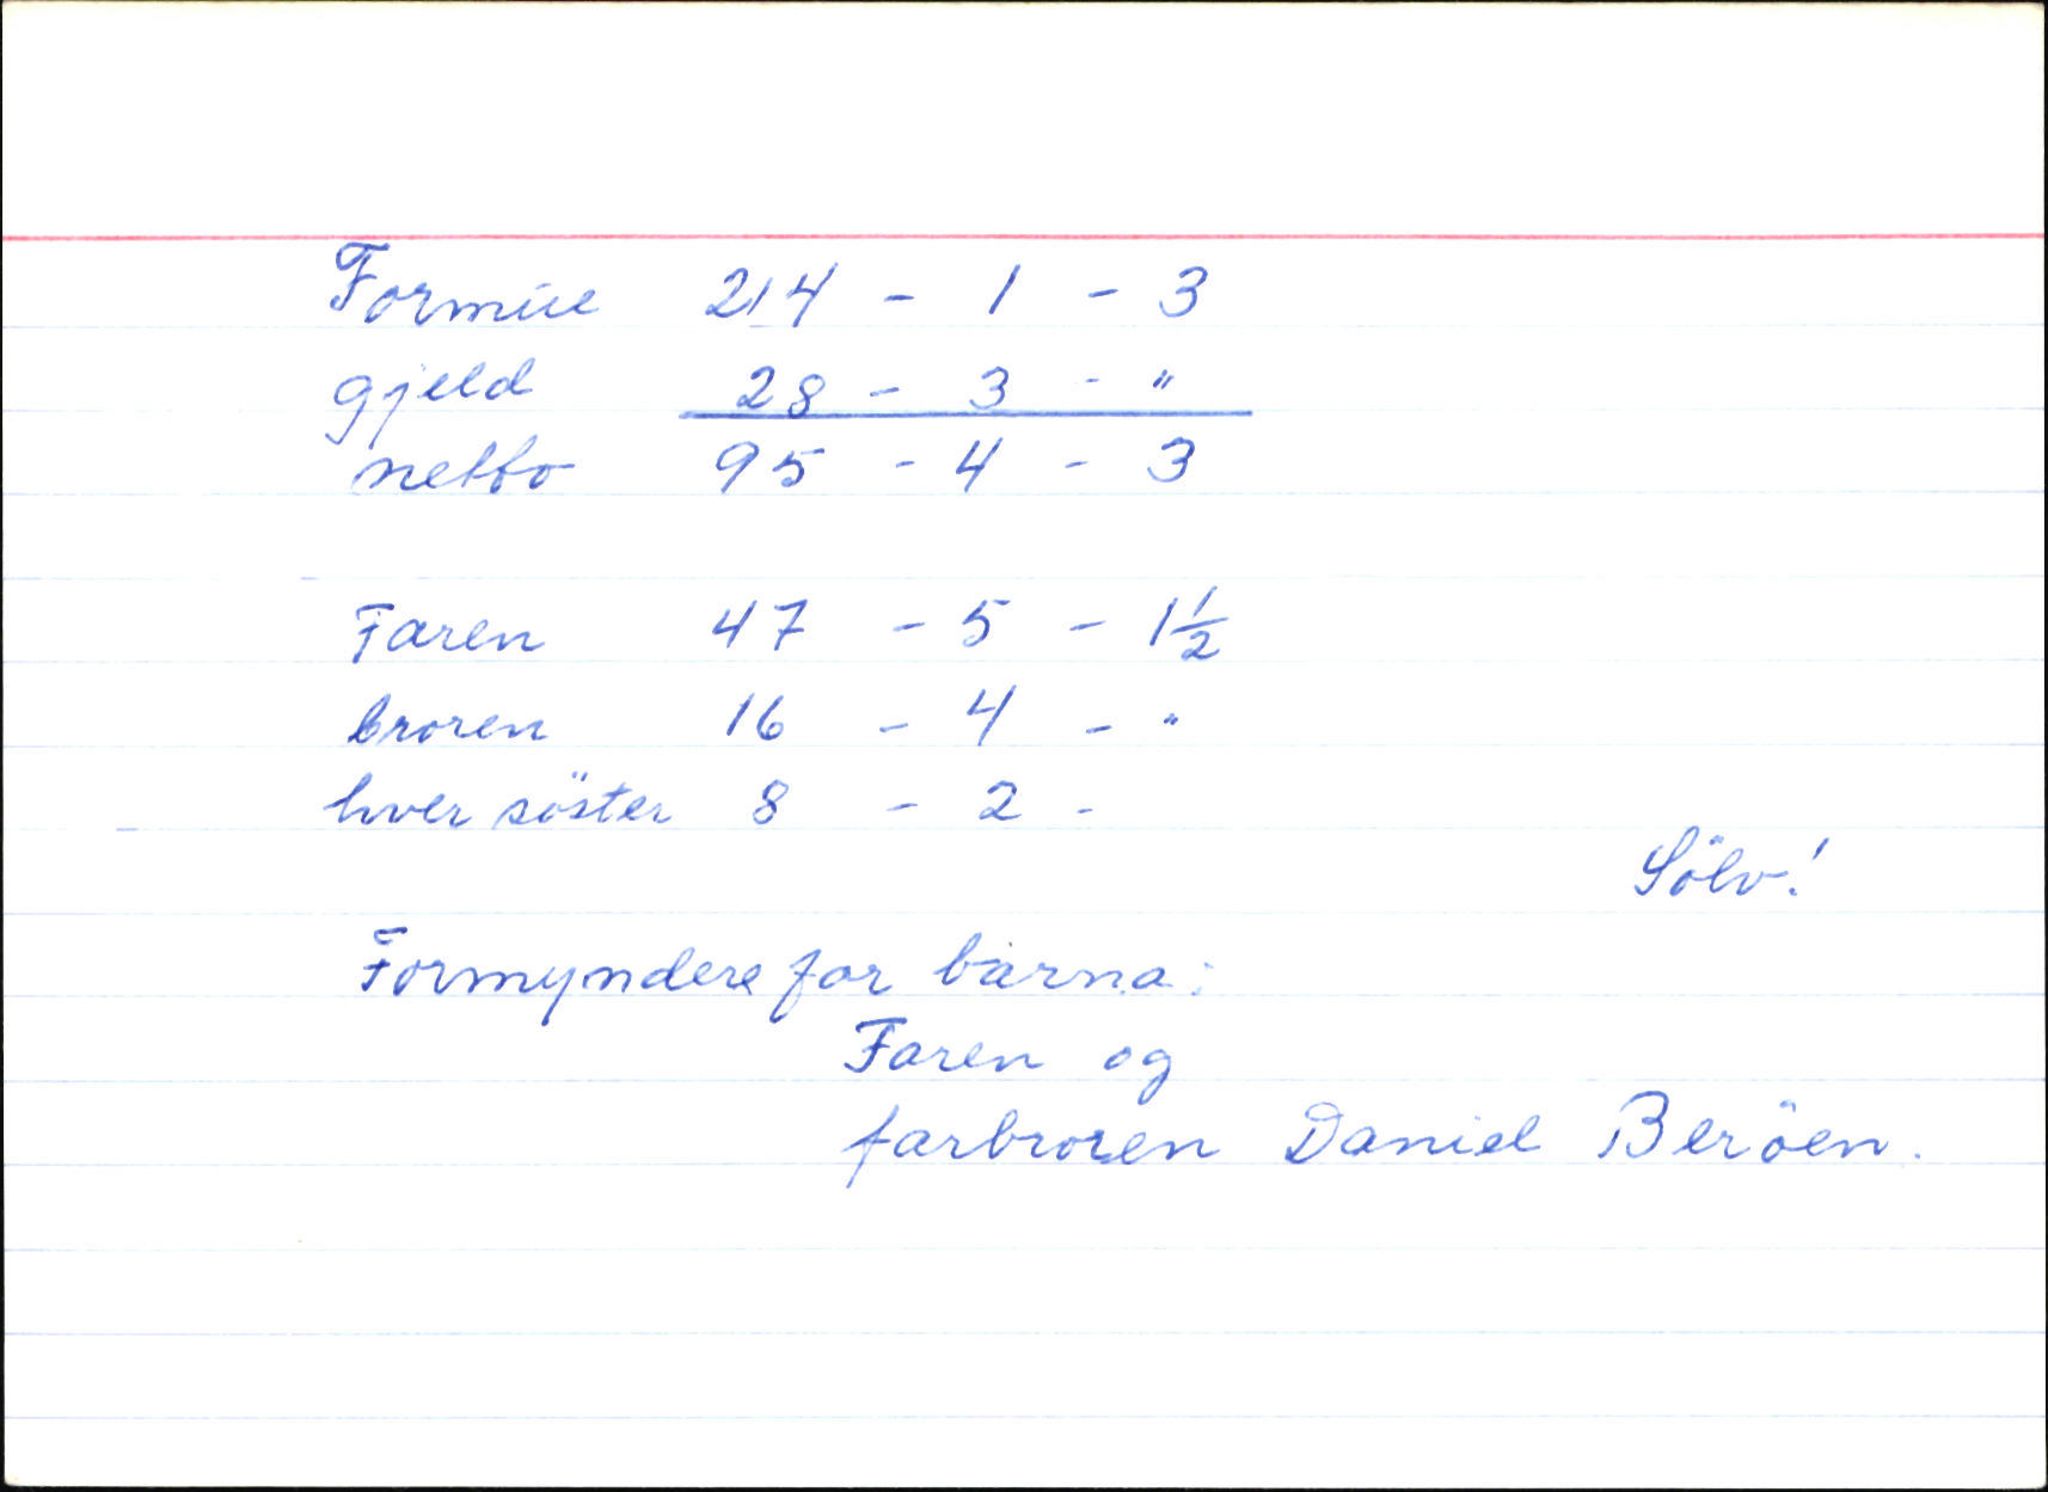 Formue 214 - 1 - 3
gjeld 28 - 3 - "
netto 95 - 4 - 3
Faren 47 - 5 - 1½
broren 16 - 4 - "
hver söster 8 - 2 -
Sölv!
Formyndere for barna:
Faren og
farbroren Daniel Beröen.